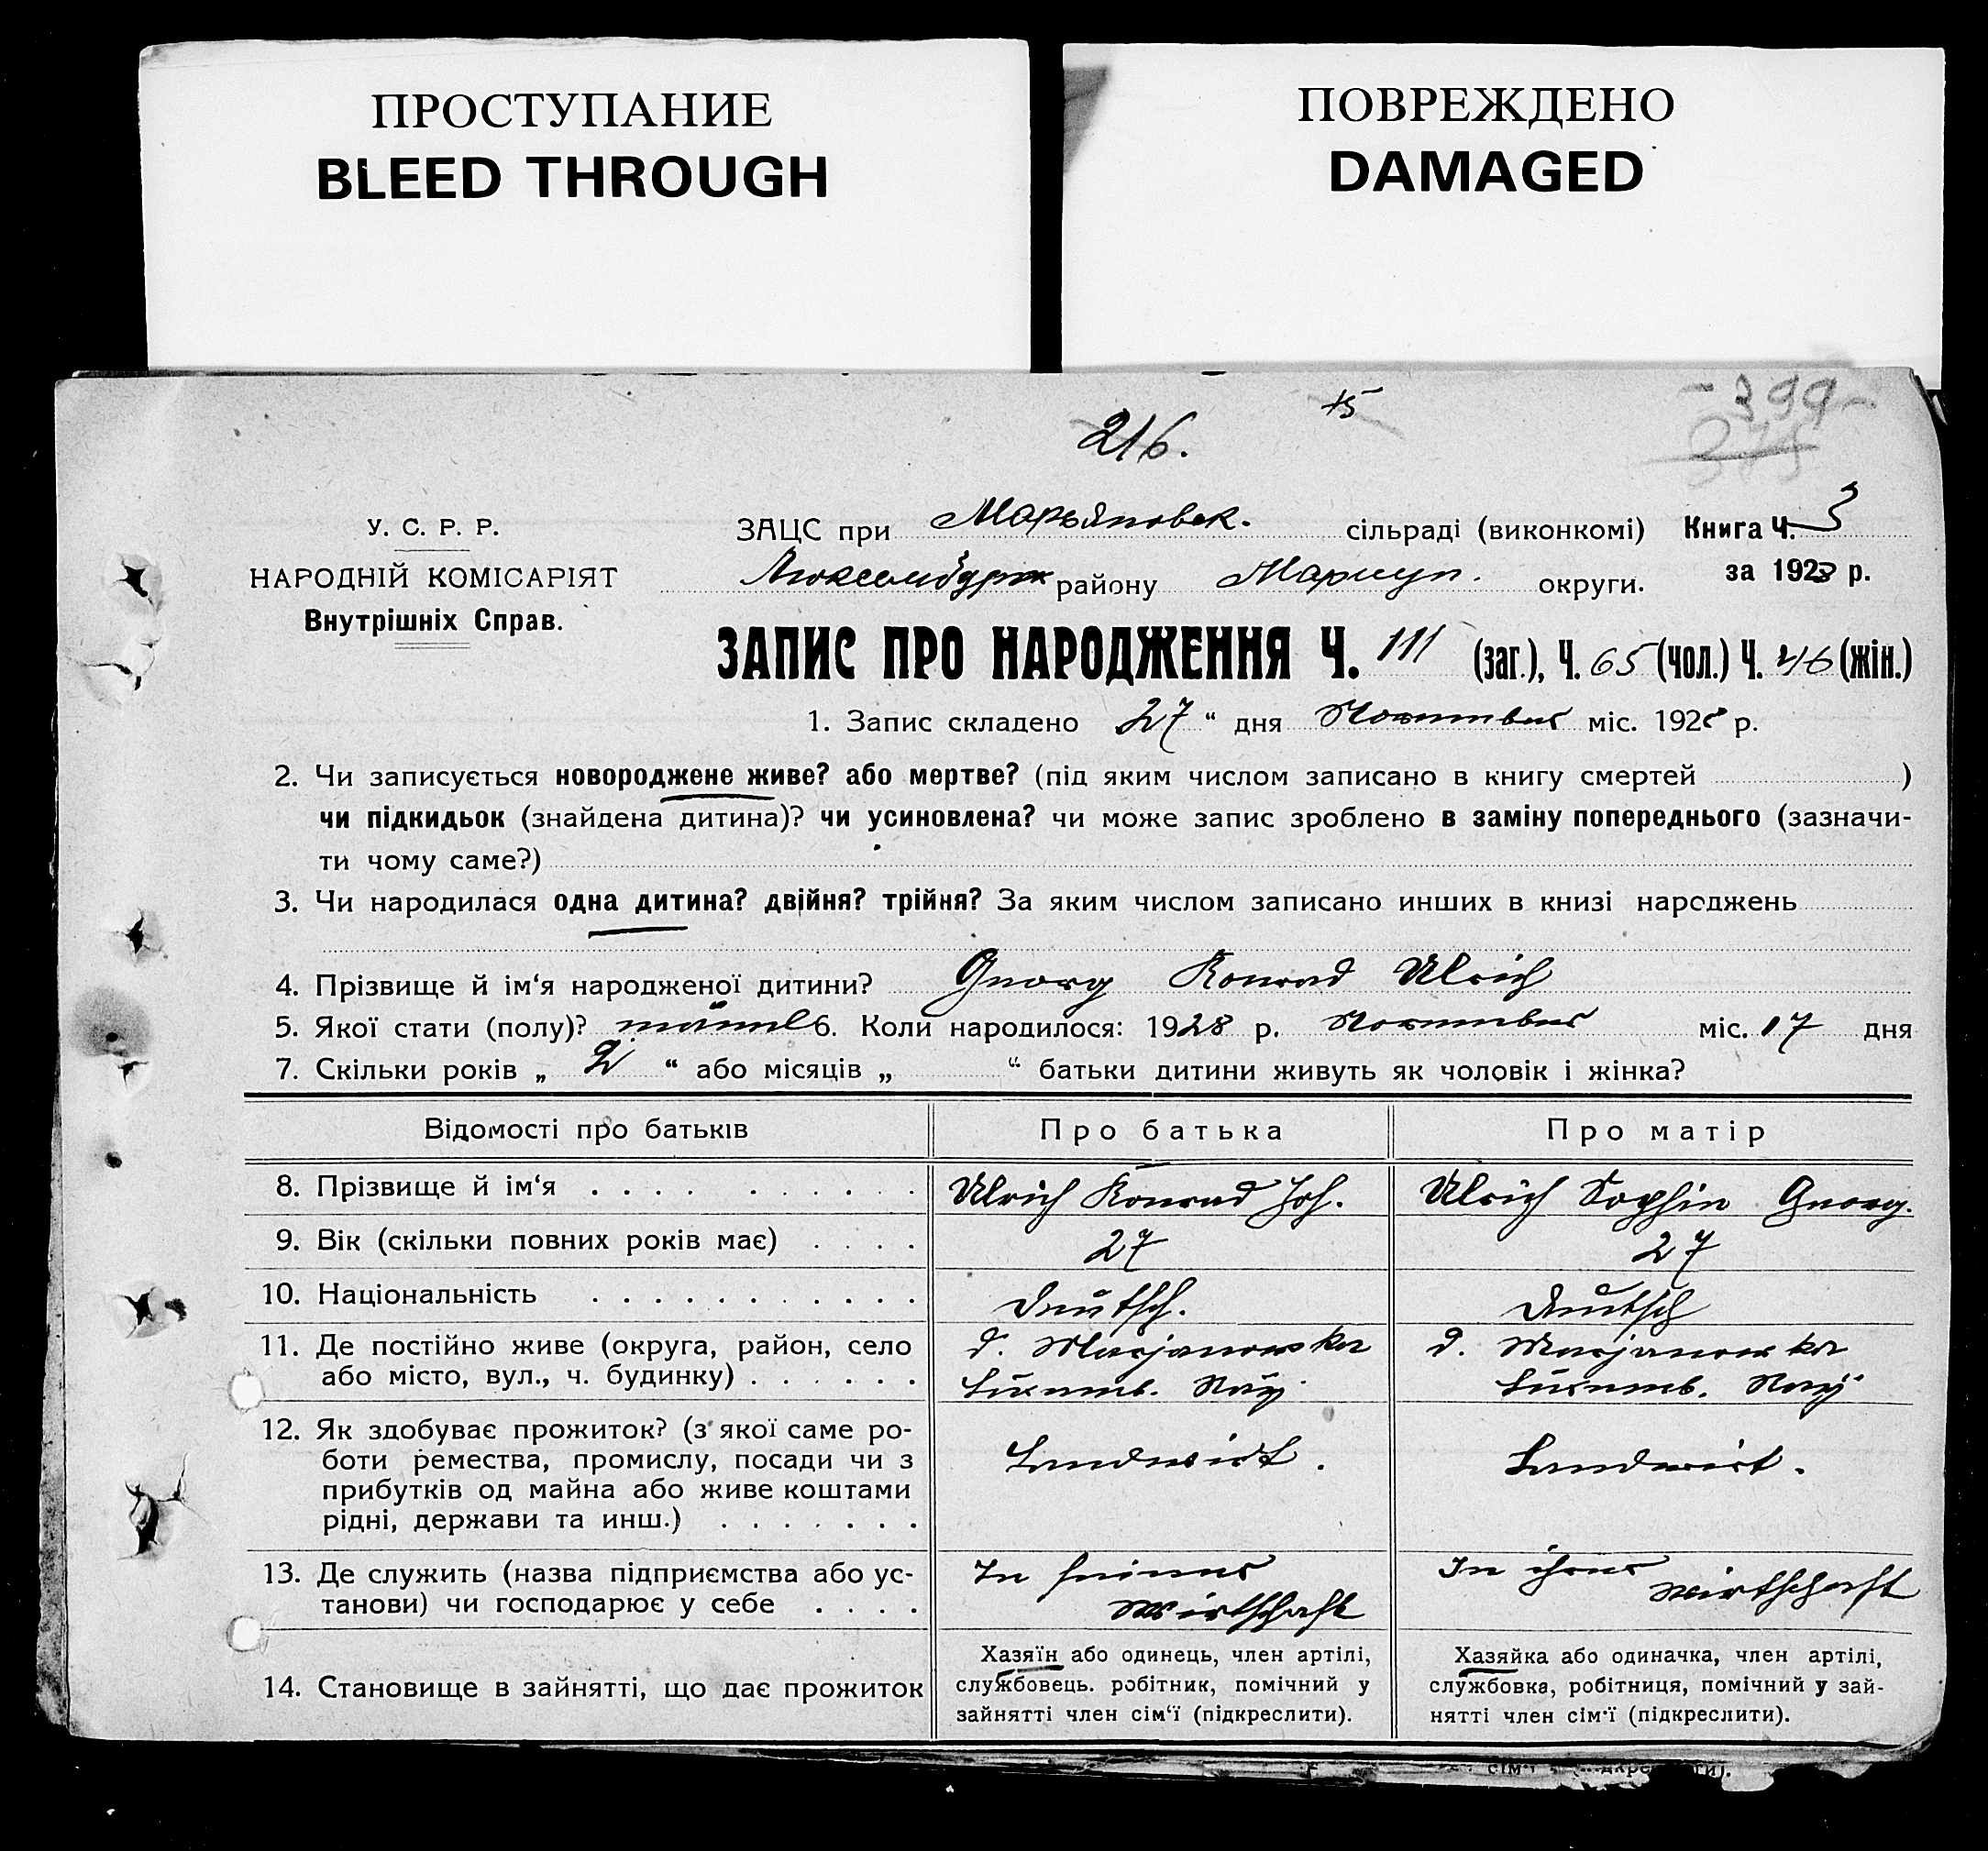 ПРОСТУПАНИЕ
BLEED THROUGH
ПОВРЕЖДЕНО
DAMAGED
15
-399-
216.
375
У. С. Р. Р.
НАРОДНІЙ КОМІСАРІЯТ
Внутрішніх Справ.
ЗАЦС при Марьяновск. сільраді (виконкомі) Книга Ч. 3
Люксембург району Мариуп. округи. за 1928 р.
ЗАПИС ПРО НАРОДЖЕННЯ Ч. 111 (заг.), Ч. 65 (чол.) Ч. 46 (жін.)
1. Запис складено 27 “ дня November міс. 1928 р.
2. Чи записується новороджене живе? або мертве? (під яким числом записано в книгу смертей )
чи підкидьок (знайдена дитина)? чи усиновлена? чи може запис зроблено в заміну попереднього (зазначи-
ти чому саме?)
3. Чи народилася одна дитина? двійня? трійня? За яким числом записано инших в книзі народжень
4. Прізвище й ім‘я народженої дитини? Georg Konrad Ulrich
5. Якої стати (полу)? männl 6. Коли народилося: 1928 р. November міс. 17 дня
7. Скільки років „ 2 “ або місяців „ “ батьки дитини живуть як чоловік і жінка?
Відомості про батьків Про батька Про матір
8. Прізвище й ім‘я . . . . . . . . . . Ulrich Konrad Joh. Ulrich Sophie Georg.
9. Вік (скільки повних років має) . . . . 27 27
10. Національність . . . . . . . . . . . Deutsch. Deutsch
11. Де постійно живе (округа, район, село d. Marjanowka d. Marjanowka
або місто, вул., ч. будинку) . . . . . . Luxemb. Ray. Luxemb. Ray.
12. Як здобуває прожиток? (з якої саме ро-
боти ремества, промислу, посади чи з Landwirt. Landwirt.
прибутків од майна або живе коштами
рідні, держави та инш.) . . . . . . .
13. Де служить (назва підприємства або ус- In seiner In ihrer
танови) чи господарює у себе . . . . Wirtschaft Wirtschaft
14. Становище в зайнятті, що дає прожиток
Хазяїн або одинець, член артілі,
службовець. робітник, помічний у
зайнятті член сім‘ї (підкреслити).
Хазяйка або одиначка, член артілі,
службовка, робітниця, помічний у зай-
нятті член сім‘ї (підкреслити).